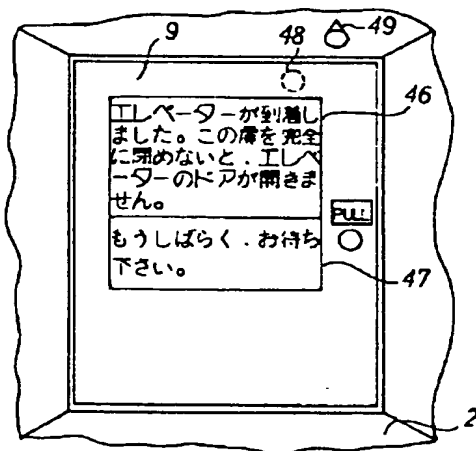 48
49
9
46
エレベーターが到着し
ました。この扉を完全
に閉めないと、エレベ
ーターのドアが開きま
せん。
PULL
もうしばらく、お待ち
下さい。
47
2